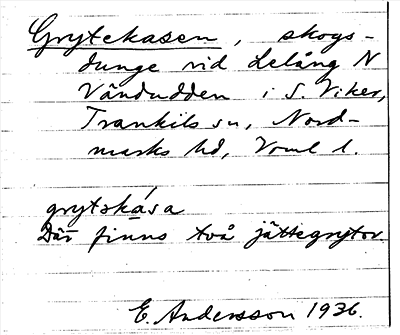 Grytekasen, skogs-
dunge vid Lelång N
Vändudden i S. Viker,
Trankils sn, Nord-
marks hd, Vrml l.
grytskása
Där finns två jättegrytor.
E. Andersson 1936.